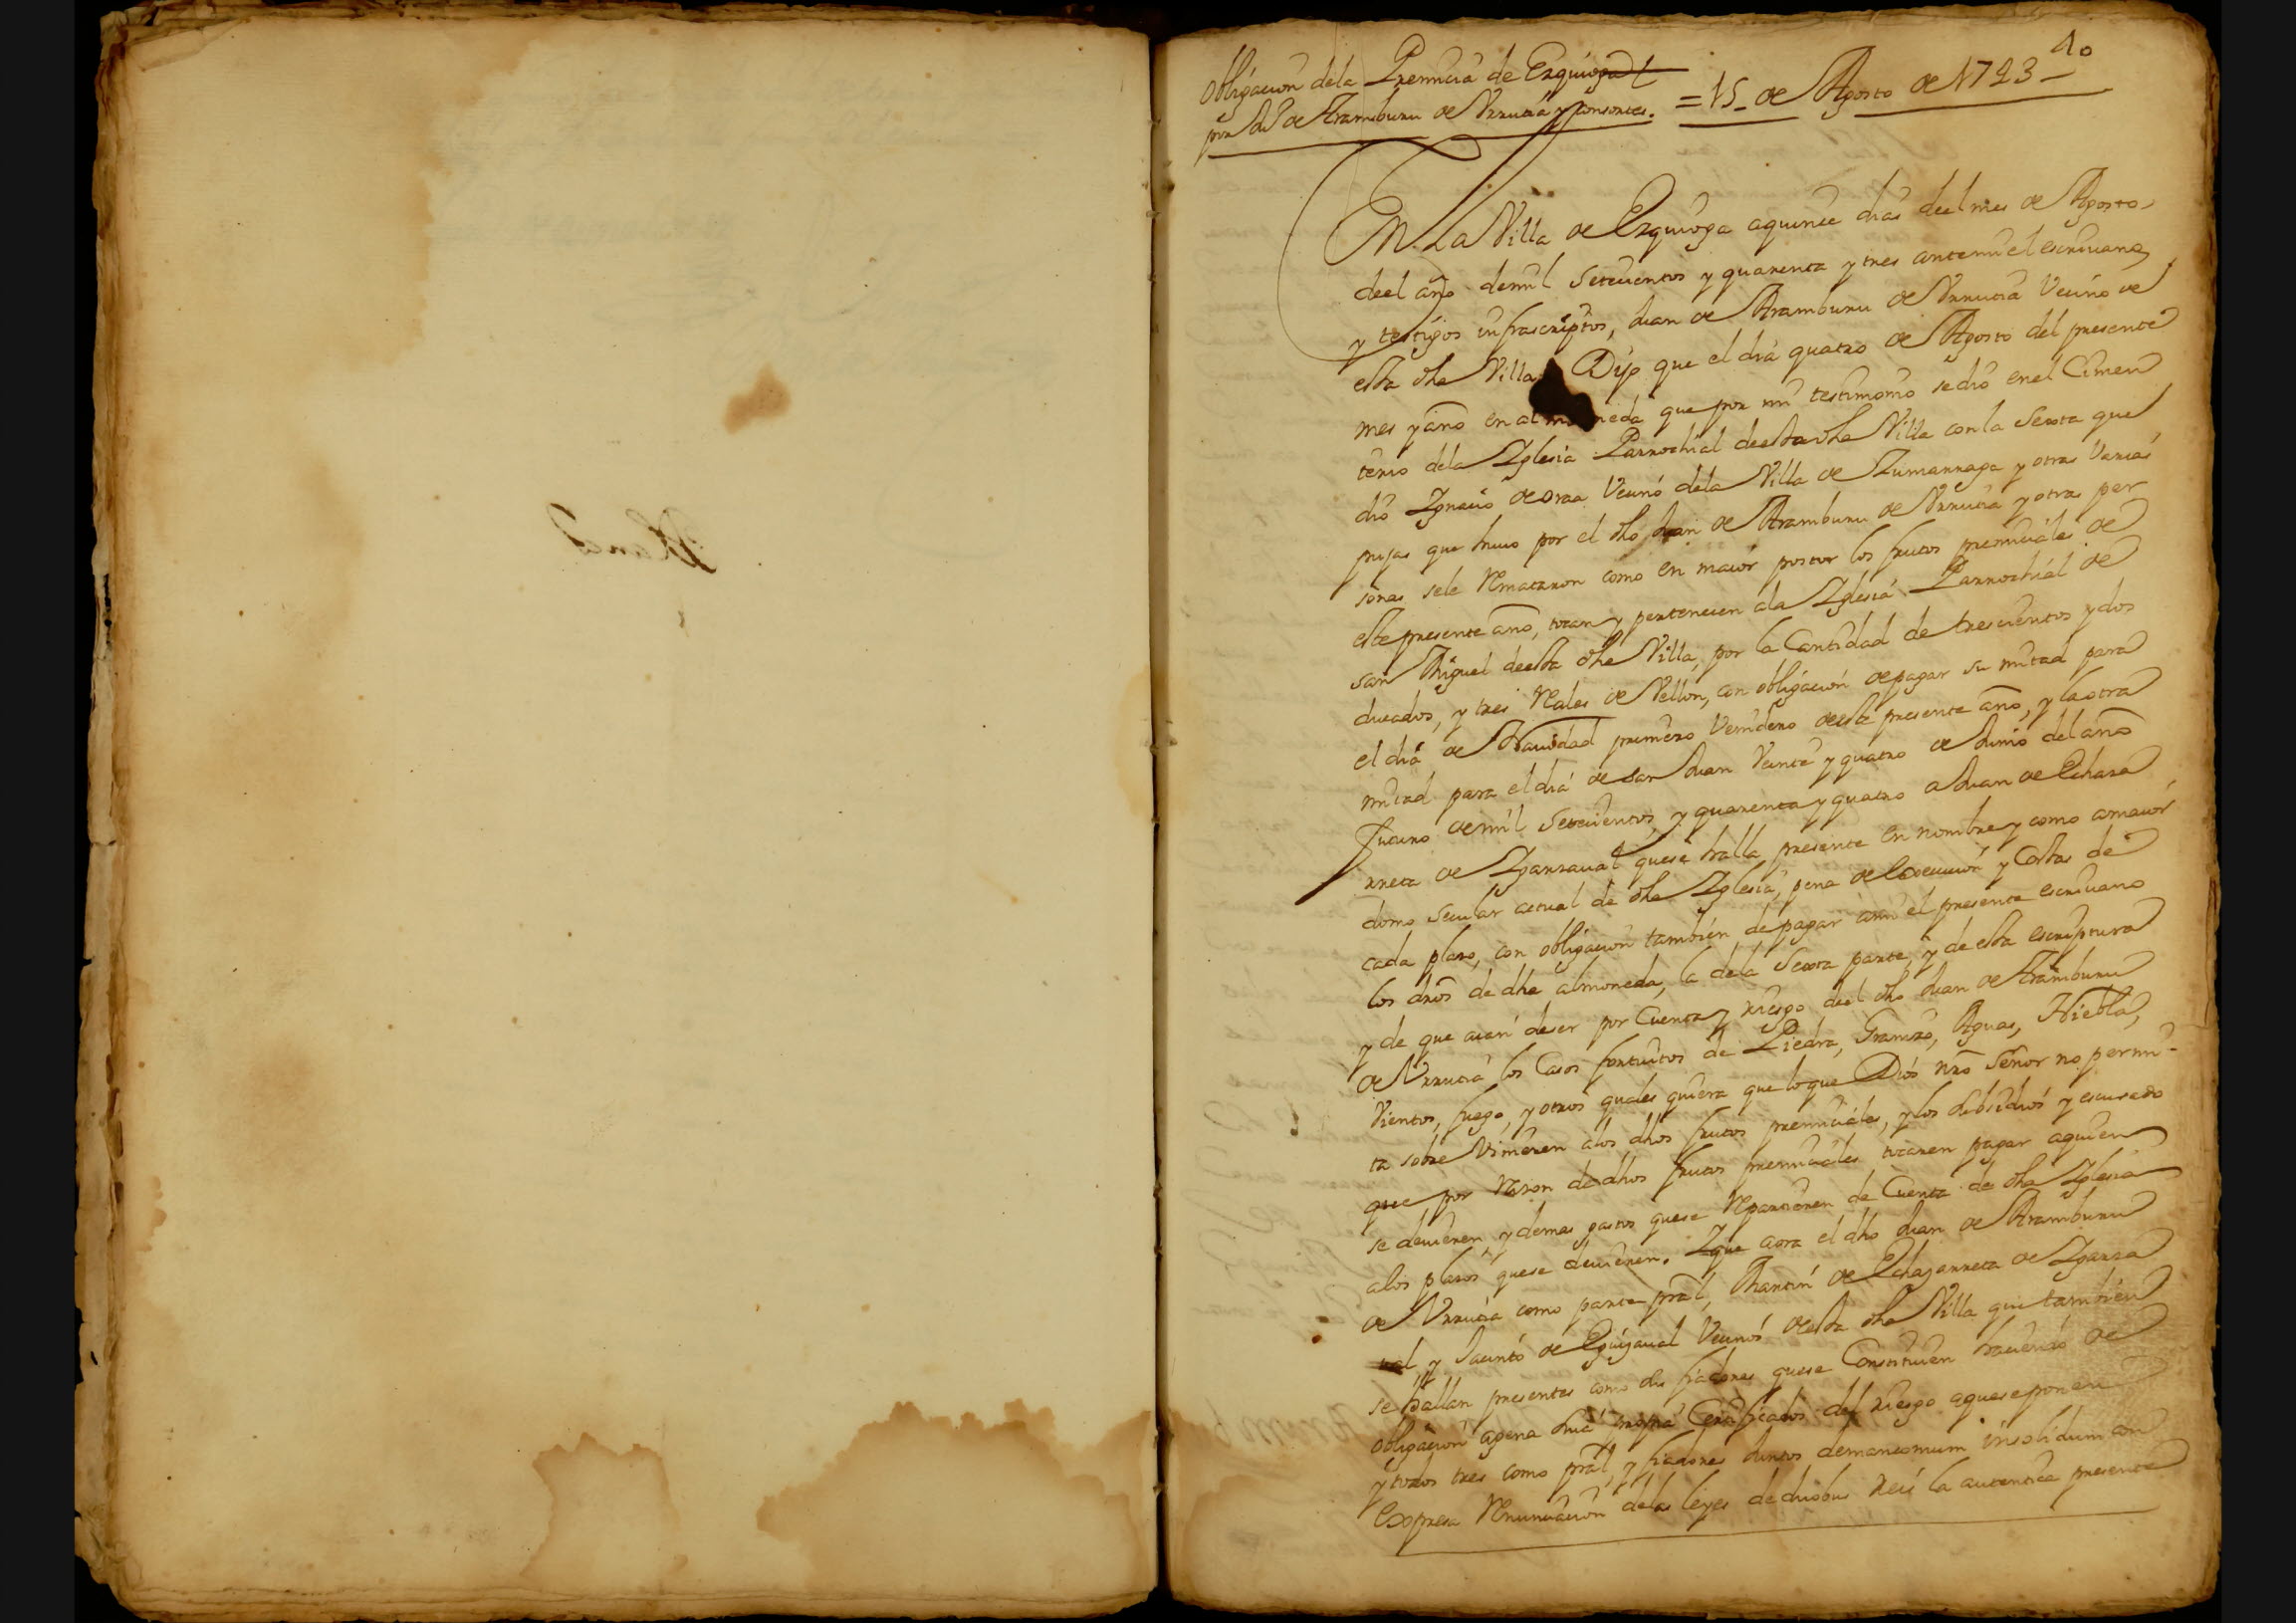 Obligacion dela Premicia de Ezquioga
por Jun de Aramburu de Vrrutia y consortes. = 15 de Agosto de 1743
40
En La Villa de Ezquioga aquince dias deel mes de Agosto
deel año demil Setecientos y quarenta y tres antemi el escriuano
y testigos infrascriptos, Juan de Aramburu de Vrrutia Vecino de
esta dha Villa Dijo que el dia quatro de Agosto del presente
mes y año en almoneda que por mi testimonio se dio enel Cimen
terio dela Iglesia Parrochial deesta dha Villa con la Sexta que
dio Ignacio de oraa Vecino dela Villa de Zumarraga y otras Varias
pujas que huuo por el dho Juan de Aramburu de Vrrutia y otras per
sonas sele Remataron como en maior postor los frutos premiciales de
este presente año, tocan y pertenecen ala Iglesia Parrochial de
san Miguel deesta dha Villa, por la Cantidad de trescientos y dos
ducados, y tres Reales de Vellon, con obligacion de pagar su mitad para
el dia de Nauidad primero Venidero deeste presente año, y la otra
mitad para el dia de san Juan Veinte y quatro de Junio del año
fucuro demil Setecientos y quarenta y quatro a Juan de Echaza
rreta de Igarzaual quese halla presente en nombre y como amaior
domo Secular actual de dha Iglesia, pena de Execucion y Costas de
cada plazo, con obligacion tambien de pagar ami el presente escriuano
los dros de dha almoneda, la dela Sexta parte, y de esta escriptura
y de que auian deser por Cuenta y riesgo deel dho Juan de Aramburu
de Vrrutia los Casos fortuitos de Piedra, Granizo, Aguas, Niebla,
Vientos, fuego, y otros quales quiera que loque Dios nro Señor no permi-
ta sobre Vinieren alos dhos frutos premiciales, y los subsidios y escusado
que por Razon de dhos frutos premiciales tocaren pagar aquien
se deuieren, y demas gastos quese Repartieren de Cuenta de dha Iglesia
alos plazos quese deuieren. Y que aora el dho Juan de Aramburu
de Vrrutia como parte pral, Martin de Echazarreta de Igarza
ual y Jacinto de Eguizaual Vecinos deesta dha Villa que tambien
se hallan presentes como sus fiadores quese Constituien haciendo de
obligacion agena suia propia Certificados del riesgo aqueseponen
y todos tres como pral, y fiadores Juntos demancomum insolidum con
Expresa Renunciacion delas leyes deduobus Reis la autentica presente